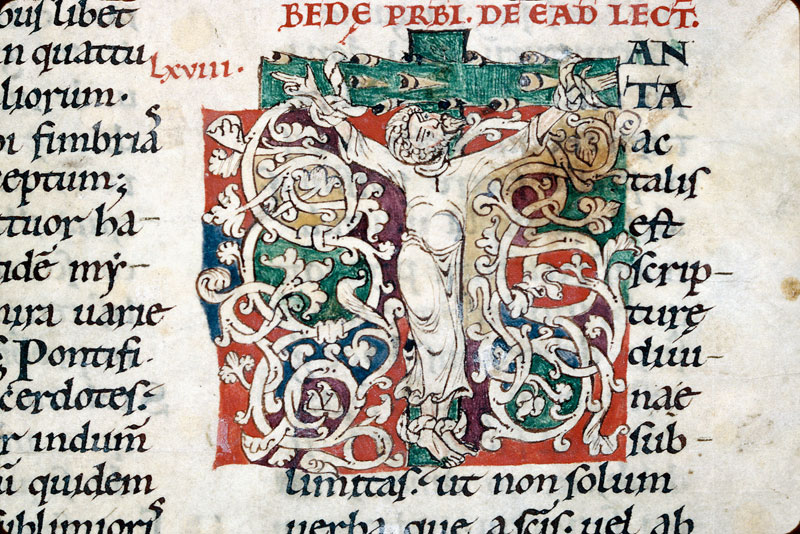 pus libet
in quattu
liorum.
pi fimbriā
ceptum;
ttuor ha-
idē my-
ura uarie
Pontifi.
cerdotes.
r indum̄
ū quidem
sublimiori
LXVIII.
BEDĘ PRBI. DE EAD LECT.
AN
TA
ac
talis
est
scrip-
turę
diui-
nae
sub-
limitas. ut non solum
uerba que a scīs. uel ab